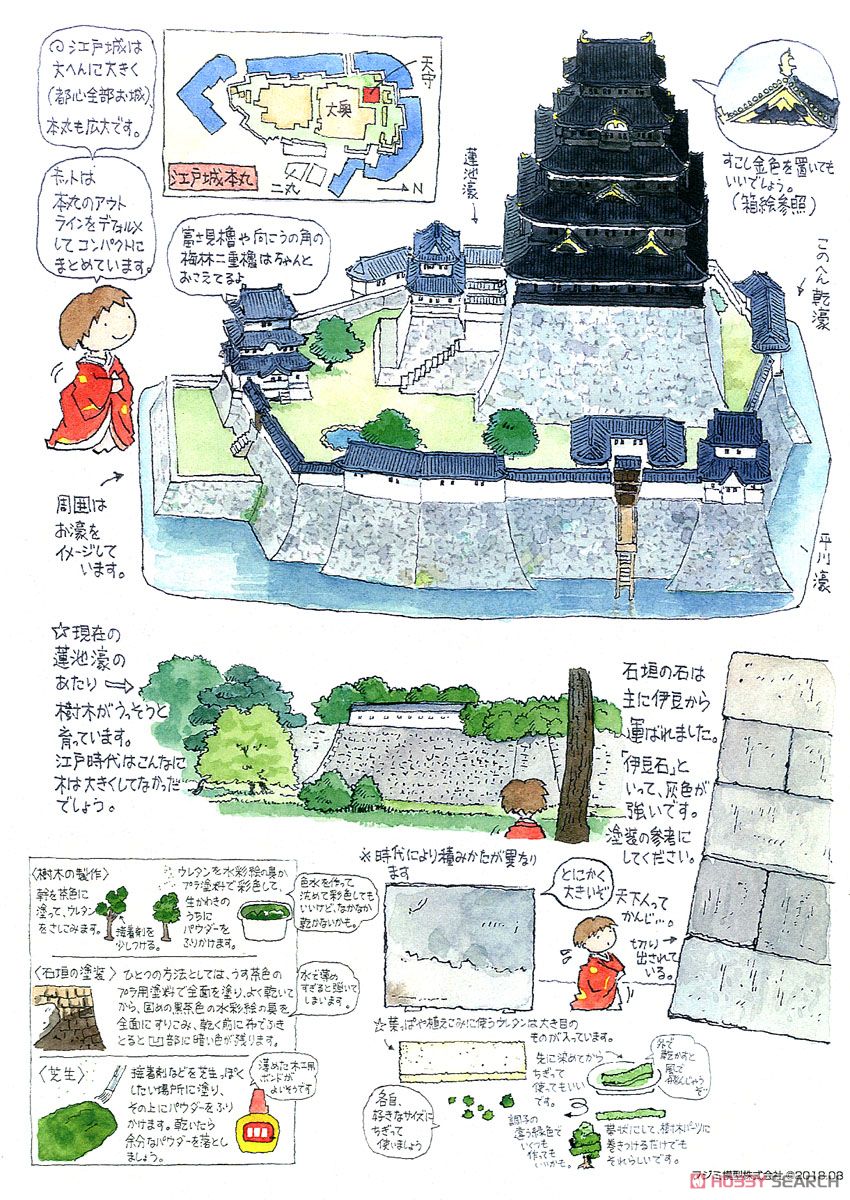 ◎江戸城は
大へんに大きく
(都心全部お城)、
本丸も広大です。
キットは
本丸のアウト
ラインをデフォルメ
して コンパクトに
まとめています。
天守
大奥
江戸城本丸
二丸
N
すこし金色を置いても
いいでしょう。
(箱絵参照)
蓮池濠
富士見櫓や向こうの角の
梅林二重櫓はちゃんと
おこえてるよ
このへん乾濠
周囲は
お濠を
イメージして
います。
平川濠
☆現在の
蓮池濠の
あたり
樹木がうっそうと
育っています。
江戸時代はこんなに
木は大きくしてなかった
でしょう。
石垣の石は
主に伊豆から
運ばれました。
「伊豆石」と
いって、灰色が
強いです。
塗装の参考に
してください。
※時代により積みかたが異なり
ます
とにかく
大きいぞ
天下人って
かんじ…。
切り
出されて
いる。
〈樹木の製作〉
幹を茶色に
塗って、ウレタン
をさしこみます。
接着剤を
少しつける。
ウレタンを水彩絵の具か
プラ塗料で彩色して、
生かわきの
うちに
パウダーを
ふりかけます。
色水を作って
沈めて彩色しても
いいけど、なかなか
乾かないかも。
〈石垣の塗装〉
ひとつの方法としては、うす茶色の
プラ用塗料で全面を塗り、よく乾いて
から、固めの黒茶色の水彩絵の具を
全面にすりこみ、乾く前に布でふき
とると凹部に暗い色が残ります。
水で薄め
すぎると弾いて
しまいます。
〈芝生〉
接着剤などを芝生っぽく
したい場所に塗り、
その上にパウダーをふり
かけます。乾いたら
余分なパウダーを落とし
ましょう。
薄めた木工用
ボンドが
よいそうです
☆葉っぱや植えこみに使うウレタンは大き目の
ものが入っています。
先に染めてから
ちぎって
使ってもいい
です。
外で
乾かすと
風で
飛んじゃうぞ
各自、
好きなサイズに
ちぎって
使いましょう
調子の
違う緑色で
いくつも
作っても
いいかも。
帯状にして、樹木パーツに
巻きつけるだけでも
それらしいです。
フジミ模型株式会社 ©2018.08
HOBBY SEARCH